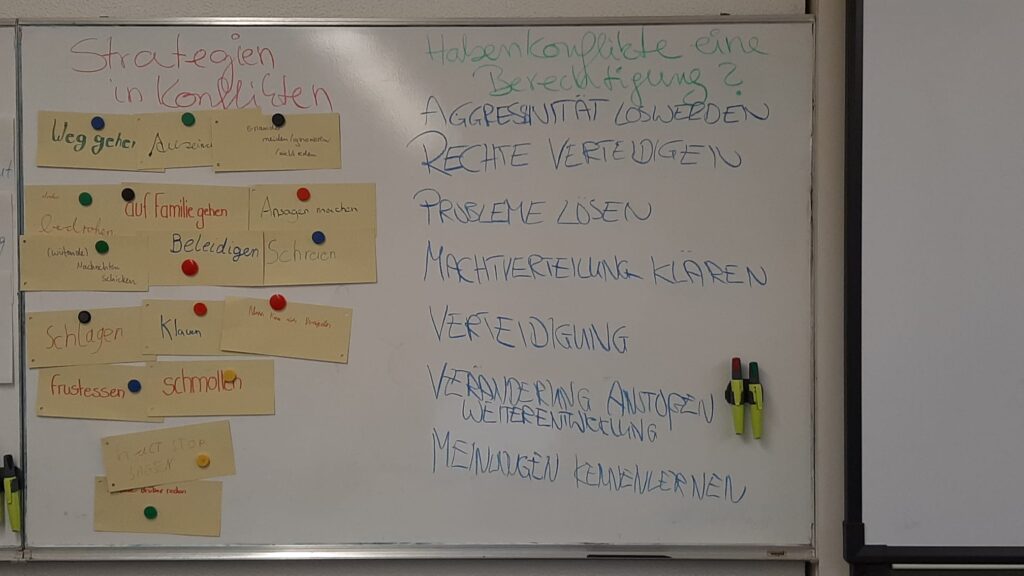 Strategien
in Konflikten
Weg gehen
meiden/ignorieren
bedrohen
auf Familie gehen
Ansagen machen
(wütende)
Nachrichten
schicken
Beleidigen
Schreien
Schlagen
Klauen
frustessen
schmollen
STOP
SAGEN
Drüber reden
Haben Konflikte eine
Berechtigung?
AGGRESSIVITÄT LOSWERDEN
RECHTE VERTEIDIGEN
PROBLEME LÖSEN
MACHTVERTEILUNG KLÄREN
VERTEIDIGUNG
VERÄNDERUNG ANSTOßEN
WEITERENTWICKLUNG
MEINUNGEN KENNENLERNEN